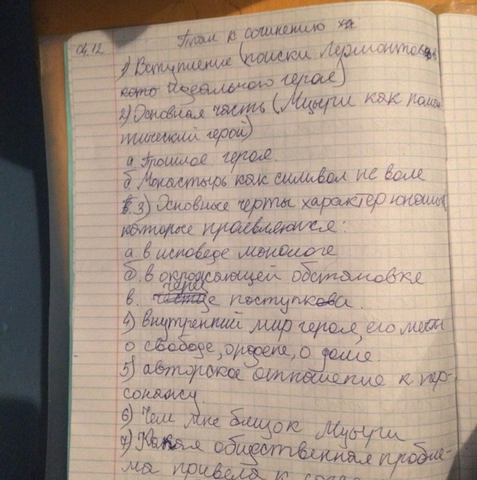 04.12 План к сочинению
1) Вступление (поиски Лермонтовым
идеального героя)
2) Основная часть (Мцыри как роман
тический герой)
а. Прошлое героя.
б Монастырь как символ не воле
3) Основные черты характер юноши,
которые проявляются:
а. в исповеде монологе
б. в окружающей обстановке
в. через поступков.
4) внутренний мир героя, его мечты
о свободе, о доме.
5) авторское отношение к пер-
сонажу
6) Чем мне близок Мцыри
7) Какая общественная пробле-
ма привела к